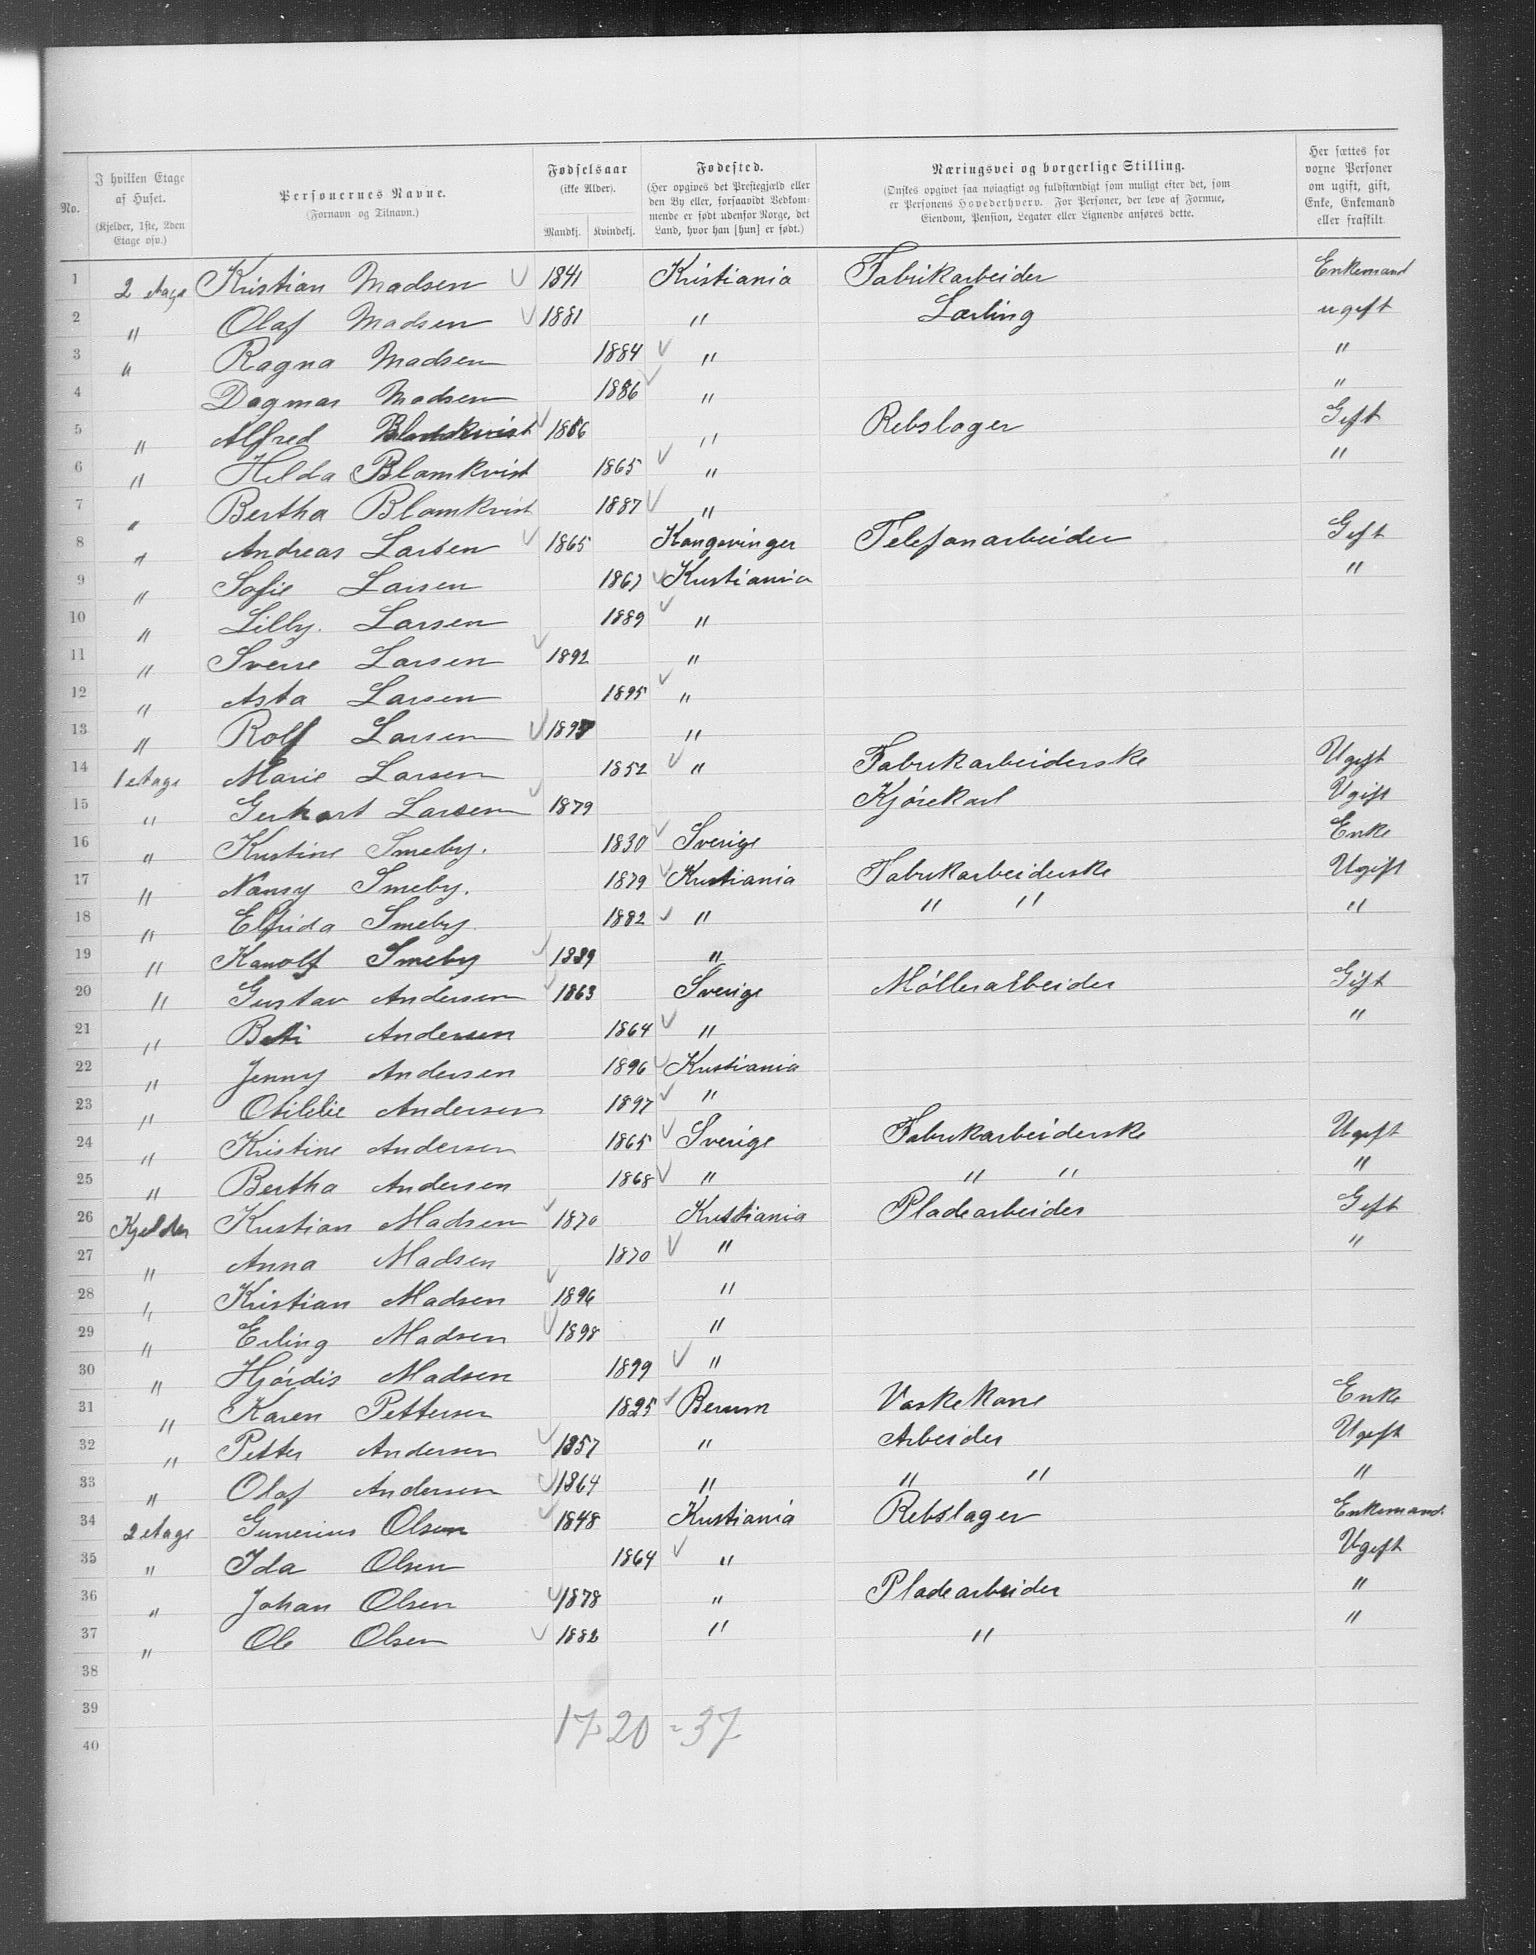 No.
I hvilken Etage af Huset. (Kjelder, 1ste, 2den Etage osv.)
Personernes Navne. (Fornavn og Tilnavn.)
Fødselsaar (ikke Alder). Mandkj. Kvindekj.
Fødested. (Her opgives det Prestegjæld eller den By eller, forsaavidt Bedkommende er født udenfor Norge, det Land, hvor han [hun] er født.)
Næringsvei og borgerlige Stilling. (Ønskes opgivet saa nøiagtigt og fuldstændigt som muligt efter det, som er Personens Hovederhverv. For Personer, der leve af Formue, Eiendom, Pension, Legater eller Lignende anføres dette.)
Her sættes for voxne Personer om ugift, gift, Enke, Enkemand eller fraskilt.
1 2 etage Kristian Madsen 1841 Kristiania Fabrikarbeider Enkemand
2 " Olaf Madsen 1881 " Lærling ugift
3 " Ragna Madsen 1884 " "
4 Dagmar Madsen 1886 " "
5 " Alfred Blomkvist 1866 " Rebslager Gift
6 " Hilda Blomkvist 1865 " "
7 " Bertha Blomkvist 1887 "
8 " Andreas Larsen 1865 Kongsvinger Telefonarbeider Gift
9 " Sofie Larsen 1867 Kristiania "
10 " Lilly. Larsen 1889 "
11 " Sverre Larsen 1892 "
12 " Asta Larsen 1895 "
13 " Rolf Larsen 1897 "
14 1 etage Marie Larsen 1852 " Fabrikarbeiderske Ugift
15 " Gerhart Larsen 1879 Kjørekarl Ugift
16 " Kristine Smeby. 1830 Sverige Enke
17 " Nansy Smeby. 1879 Kristiania Fabrikarbeiderske Ugift
18 " Elfrida Smeby. 1882 " " " "
19 " Kanolf Smeby 1889 "
20 " Gustav Andersen 1863 Sverige Møllerarbeider Gift
21 " Andersen 1864 " "
22 " Jenny Andersen 1896 Kristiania
23 " Otilelie Andersen 1897 "
24 " Kristine Andersen 1865 Sverige Fabrikarbeiderske Ugift
25 " Bertha Andersen 1868 " " " "
26 Kjelder Kristian Madsen 1870 Kristiania Pladearbeider Gift
27 " Anna Madsen 1870 " "
28 " Kristian Madsen 1896 "
29 " Erling Madsen 1898 "
30 " Hjørdis Madsen 1899 "
31 " Karen Pettersen 1825 Berum Vaskekone Enke
32 " Petter Andersen 1857 " Arbeider Ugift
33 " Olaf Andersen 1864 " " " "
34 2 etage Gunerius Olsen 1848 Kristiania Rebslager Enkemand.
35 " Ida Olsen 1864 " Ugift
36 " Johan Olsen 1878 " Pladearbeider "
37 " Ole Olsen 1882 " " "
38
39
40
17 20 = 37